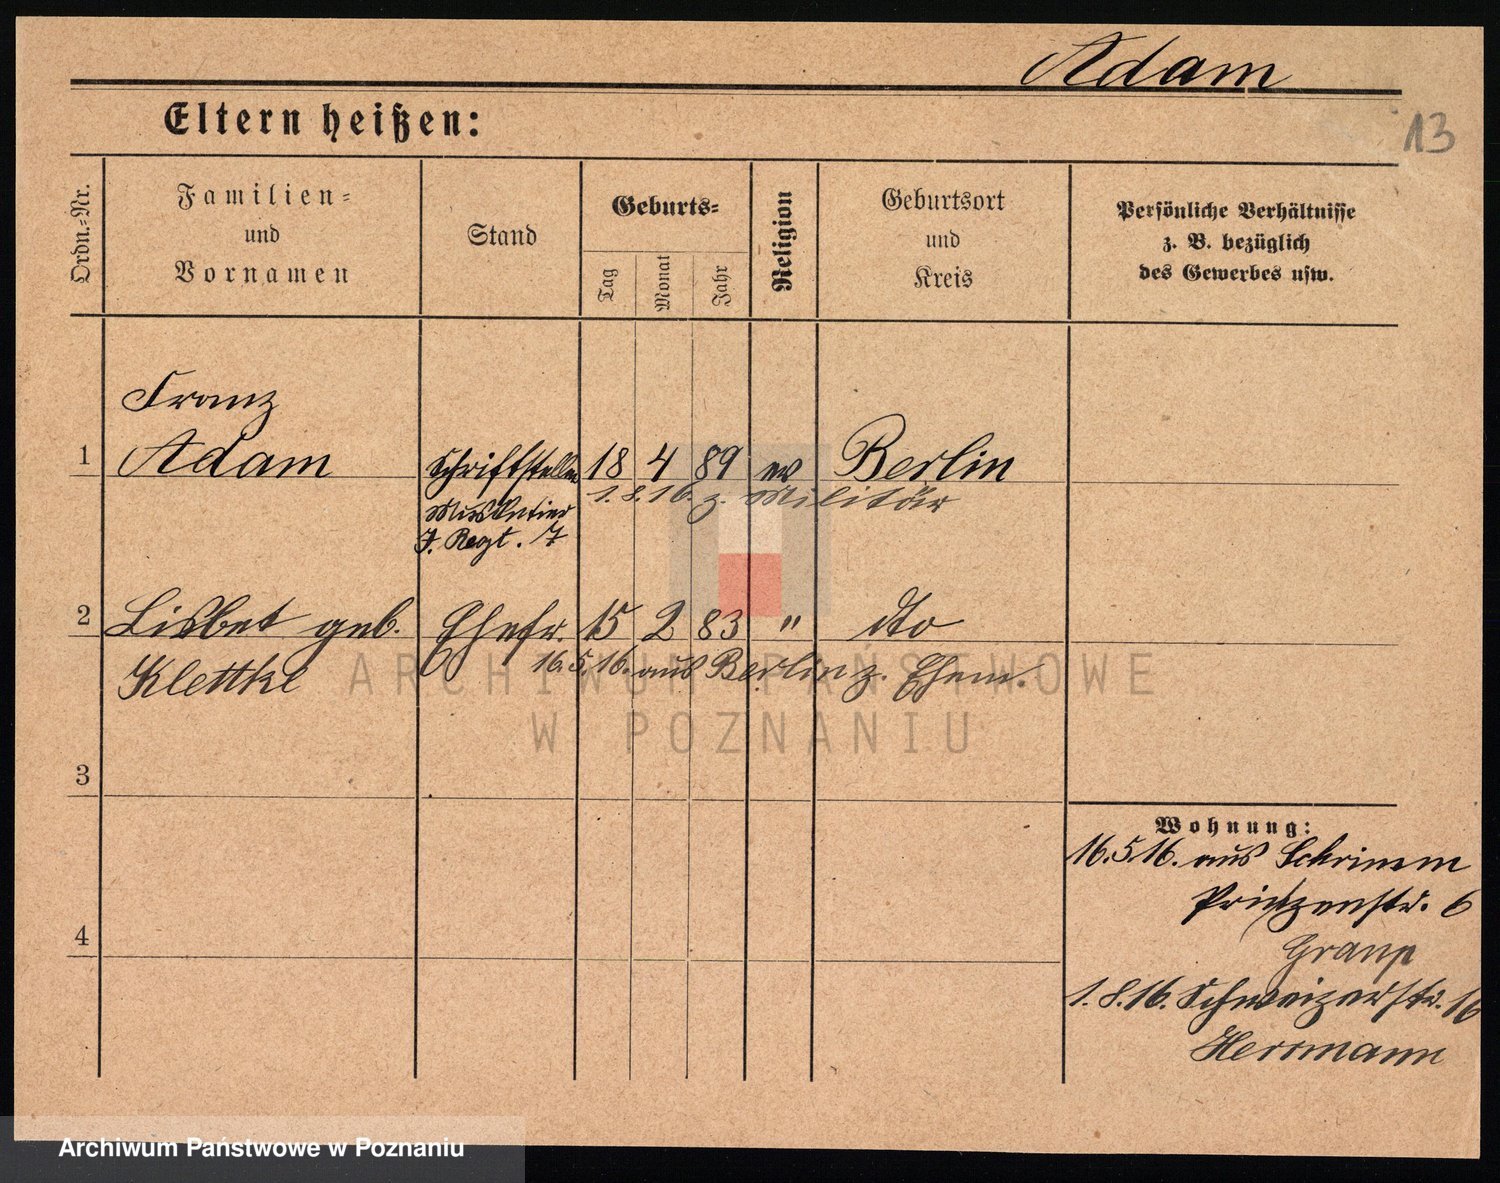 Adam
13
Eltern heißen:
Ordn.-Nr.
Familien-
und
Vornamen
Stand
Geburts-
Tag
Monat
Jahr
Religion
Geburtsort
und
Kreis
Persönliche Verhältnisse
z. B. bezüglich
des Gewerbes usw.
Franz
1 Adam Schriftsteller 18 4 89 ev Berlin
1.8.16. z. Militär
Musketier
J. Regt. 7
2 Lisbet geb. Ehefr. 15 2 83 " dto
Klettke 16.5.16. aus Berlin z. Ehem.
3
4
Wohnung:
16.5.16. aus Schrimm
Prinzenstr. 6
1.8.16. Schweizerstr. 16
Herrmann
ARCHIWUM PAŃSTWOWE
W POZNANIU
Archiwum Państwowe w Poznaniu